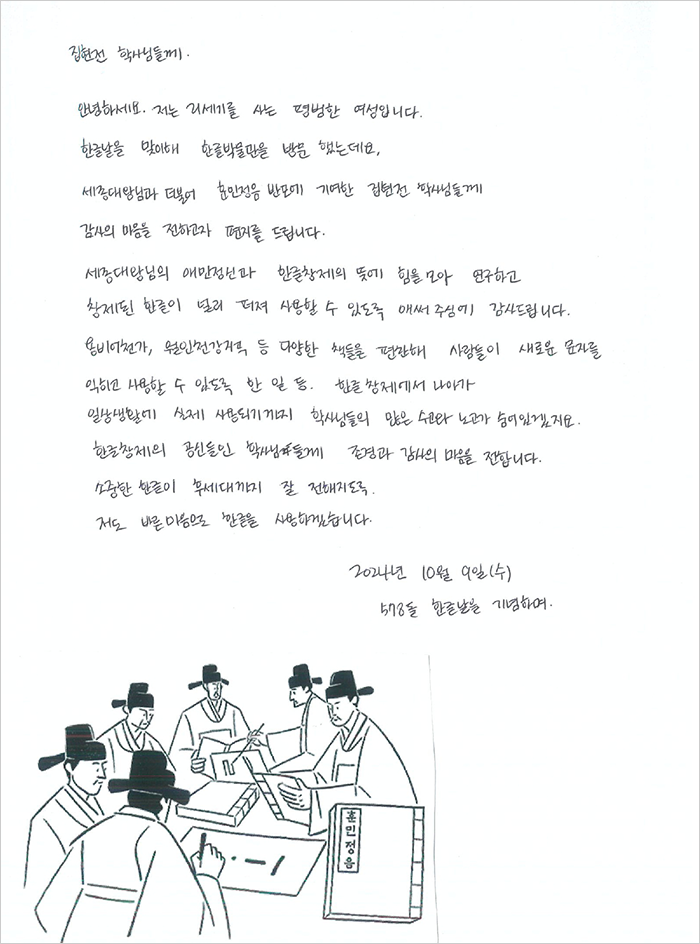 집현전 학사님들께.
안녕하세요. 저는 21세기를 사는 평범한 여성입니다.
한글날을 맞이해 한글박물관을 방문 했는데요,
세종대왕님과 더불어 훈민정음 반포에 기여한 집현전 학사님들께
감사의 마음을 전하고자 편지를 드립니다.
세종대왕님의 애민정신과 한글창제의 뜻에 힘을 모아 연구하고
창제된 한글이 널리 퍼져 사용할 수 있도록 애써 주심에 감사드립니다.
용비어천가, 월인천강지곡 등 다양한 책들을 편찬해 사람들이 새로운 문자를
익히고 사용할 수 있도록 한 일 등. 한글 창제에서 나아가
일상생활에 실제 사용되기까지 학사님들의 많은 수고와 노고가 숨어있겠지요.
한글창제의 공신들인 학사님들께 존경과 감사의 마음을 전합니다.
소중한 한글이 후세대까지 잘 전해지도록.
저도 바른마음으로 한글을 사용하겠습니다.
2024년 10월 9일(수)
578돌 한글날을 기념하며.
훈민정음